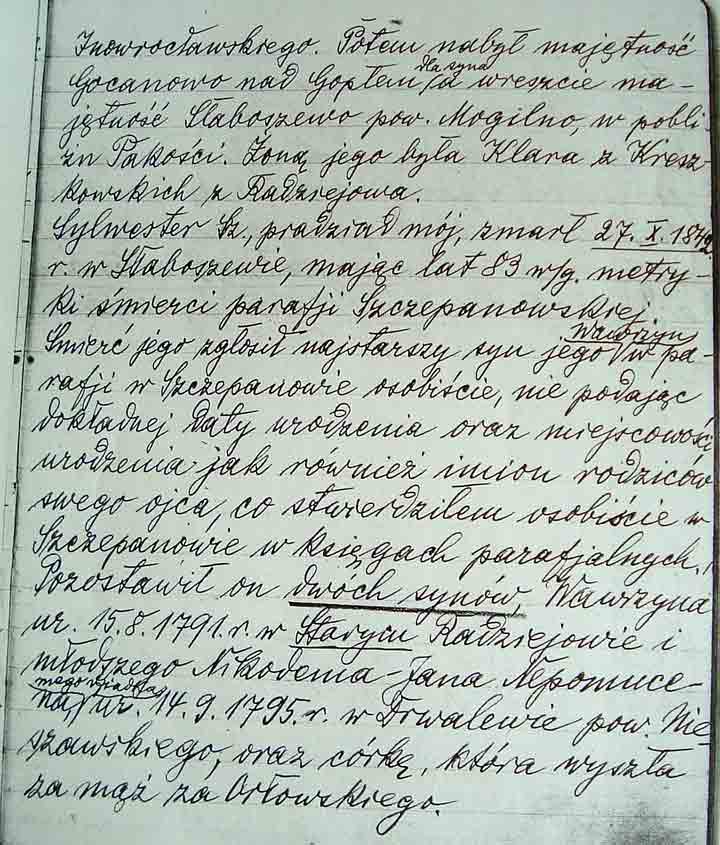 Inowrocławskiego. Potem nabył majętność
Gocanowo nad Gopłem /dla syna/ a wreszcie ma-
jętność Słaboszewo pow. Mogilno, w pobli-
żu Pakości. Żoną jego była Klara z Kresz-
kowskich z Radziejowa.
Sylwester Sz., pradziad mój, zmarł 27. X. 1842
r. w Słaboszewie, mając lat 83 w/g. metry-
ki śmierci parafji Szczepanowskiej.
Śmierć jego zgłosił najstarszy syn jego /Wawrzyn/ w pa-
rafji w Szczepanowie osobiście, nie podając
dokładnej daty urodzenia oraz miejscowości
urodzenia jak również imion rodziców
swego ojca, co stwierdziłem osobiście w
Szczepanowie w księgach parafjalnych.
Pozostawił on dwóch synów, Wawrzyna
ur. 15.8.1791.r. w Starym Radziejowie i
młodszego Nikodema-Jana Nepomuce-
na, /mego dziadka/ ur. 14.9.1795.r. w Trwalewie pow. Nie-
szawskiego, oraz córkę, która wyszła
za mąż za Orłowskiego.